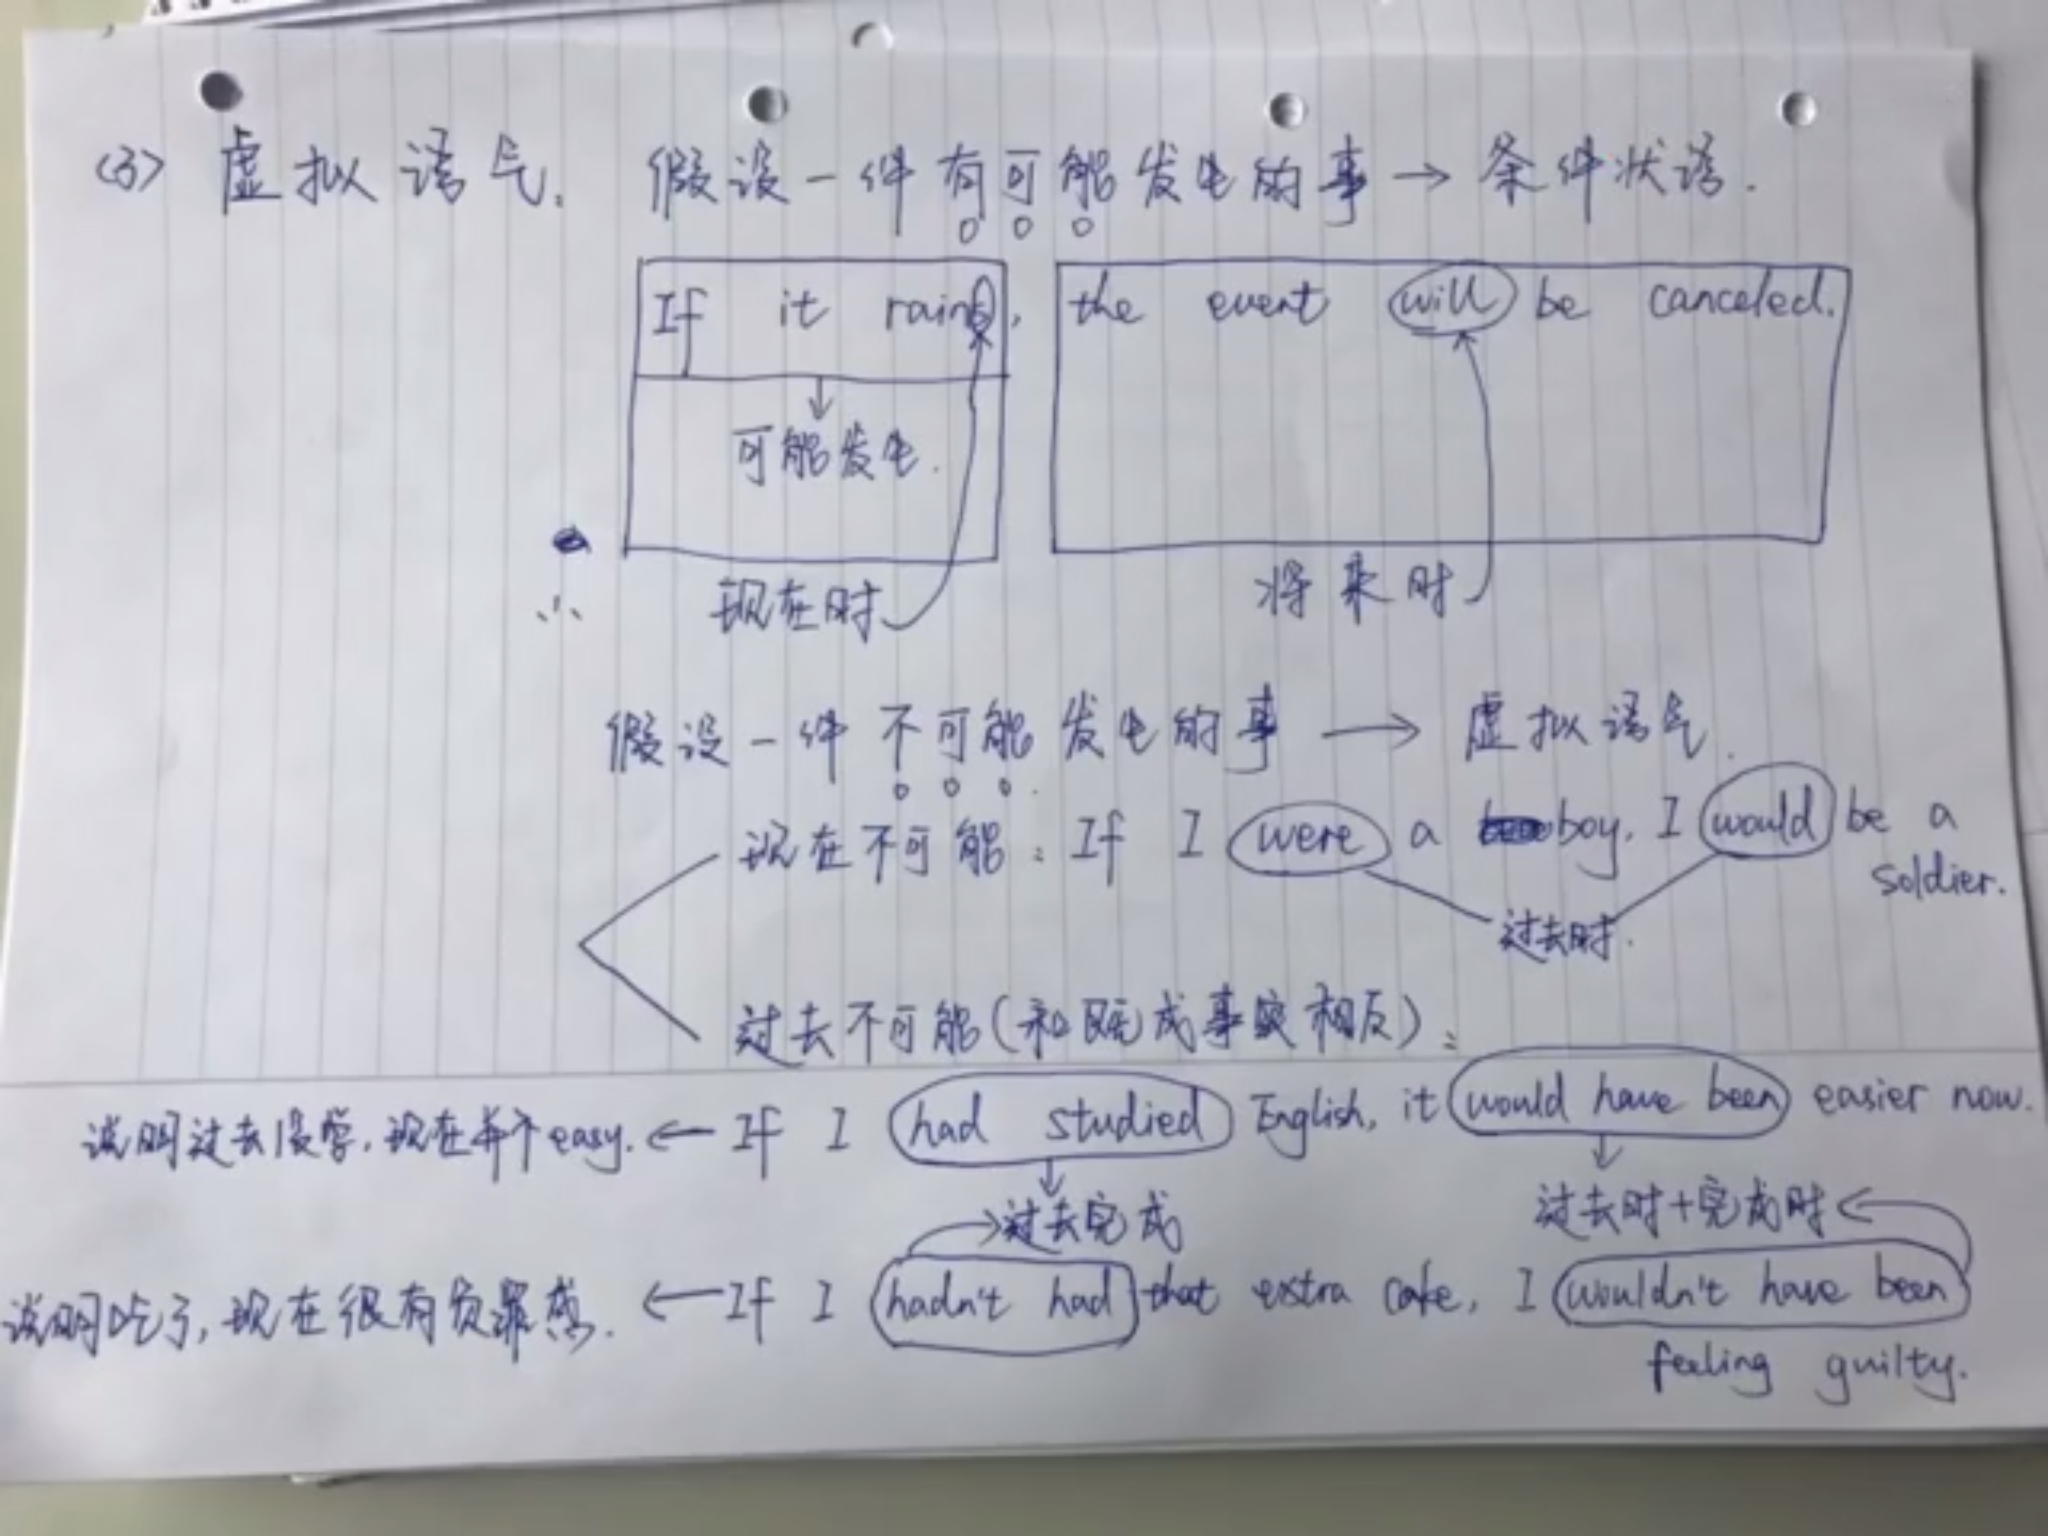 (3) 虚拟语气: 假设一件有可能发生的事 → 条件状语.
If it rains, the event will be canceled.
可能发生.
现在时 将来时
假设一件不可能发生的事 → 虚拟语气.
现在不可能: If I were a boy, I would be a
soldier.
过去时.
过去不可能(和既成事实相反):
说明过去没学,现在并不easy. ← If I had studied English, it would have been easier now.
过去完成 过去时+完成时
说明吃了,现在很有负罪感. ← If I hadn't had that extra cake, I wouldn't have been
feeling guilty.